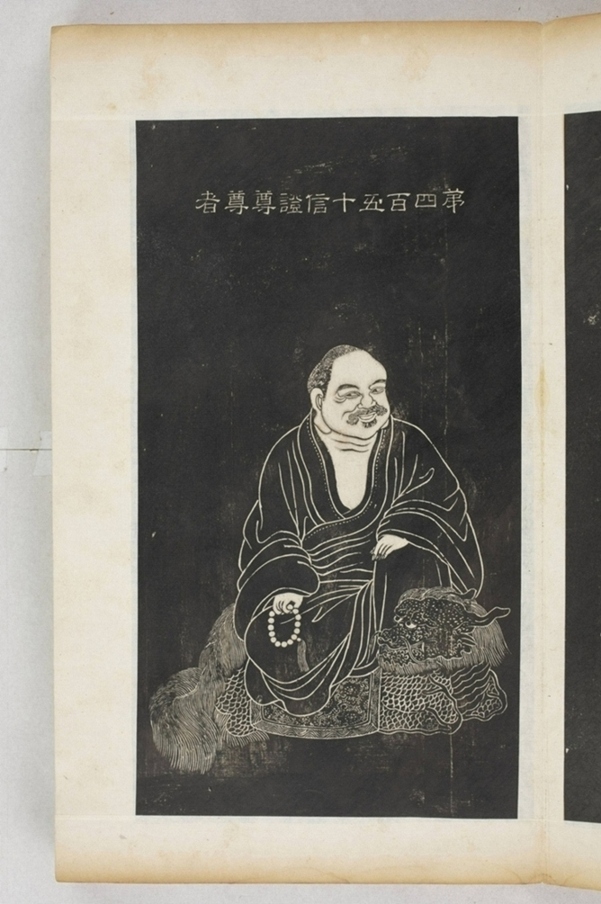 苐四百五十信證尊尊者